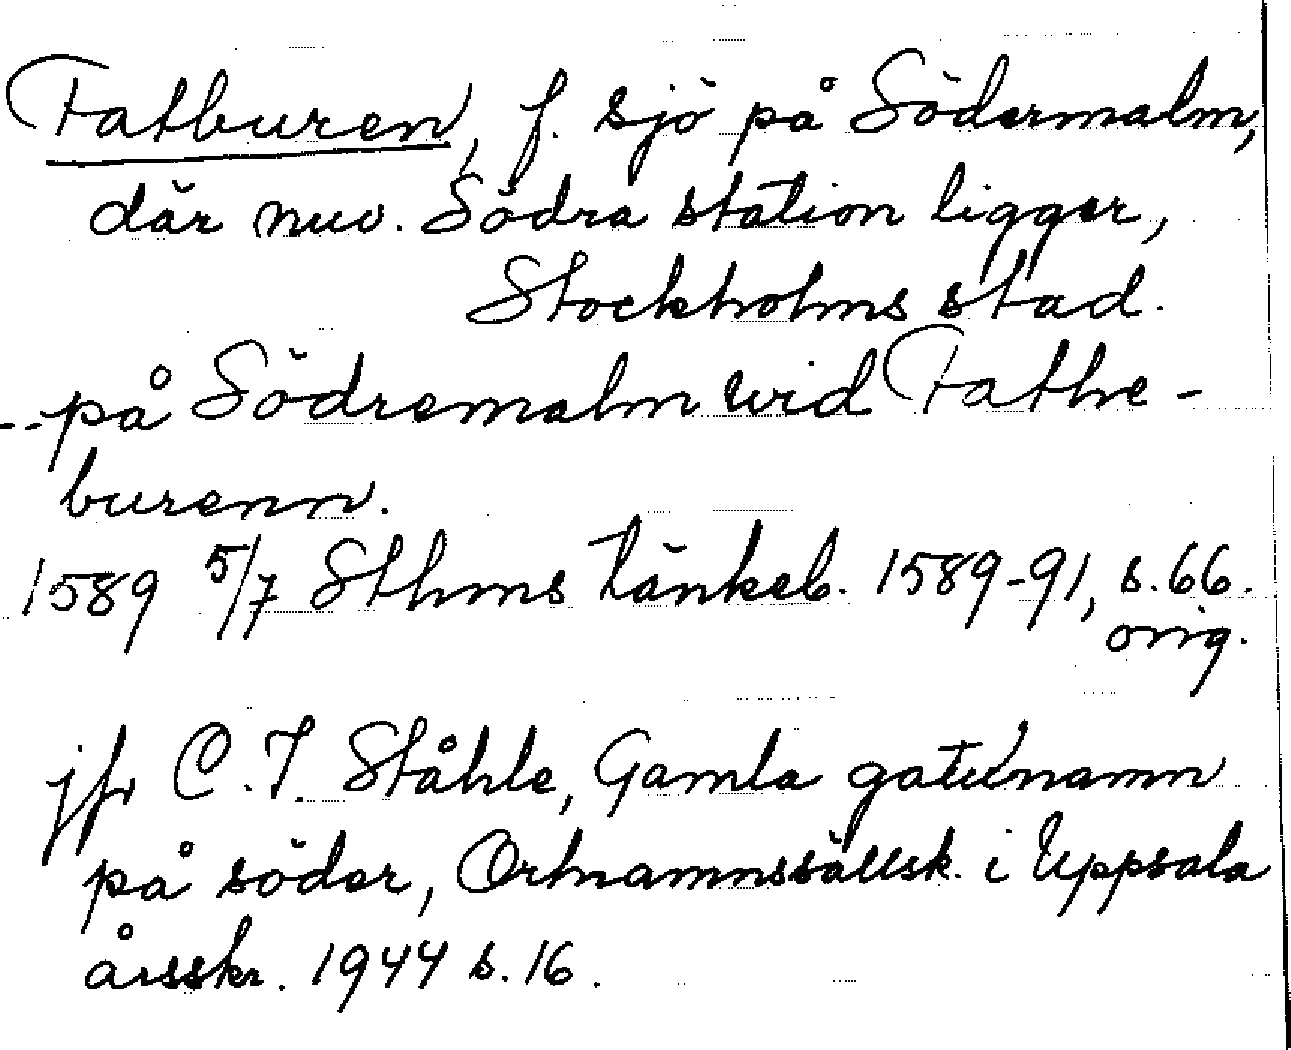 Fatburen, f. sjö på Södermalm,
där nuv. Södra station ligger,
Stockholms stad.
-- på Södremalm wid Fathe-
burenn.
1589 5/7 Sthms tänkeb. 1589-91, s. 66.
orig.
jfr C. I. Ståhle, Gamla gatunamn
på söder, Ortnamnssällsk. i Uppsala
årsskr. 1944 s. 16.